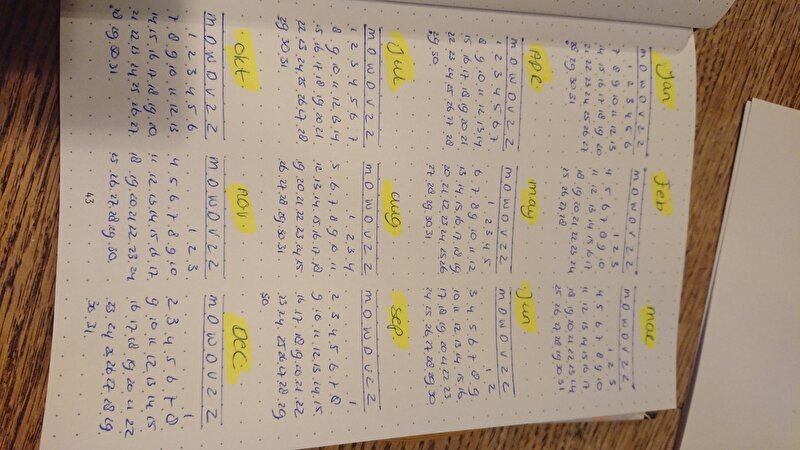 Jan
m o w o v z z
1 2 3 4 5 6
7 8 9 10 11 12 13
14 15 16 17 18 19 20
21 22 23 24 25 26 27
28 29 30 31
Feb
m o w o v z z
1 2 3
4 5 6 7 8 9 10
11 12 13 14 15 16 17
18 19 20 21 22 23 24
25 26 27 28
mar
m o w o v z z
1 2 3
4 5 6 7 8 9 10
11 12 13 14 15 16 17
18 19 20 21 22 23 24
25 26 27 28 29 30 31
Apr
m o w o v z z
1 2 3 4 5 6 7
8 9 10 11 12 13 14
15 16 17 18 19 20 21
22 23 24 25 26 27 28
29 30
may
m o w o v z z
1 2 3 4 5
6 7 8 9 10 11 12
13 14 15 16 17 18 19
20 21 22 23 24 25 26
27 28 29 30 31
Jun
m o w o v z z
1 2
3 4 5 6 7 8 9
10 11 12 13 14 15 16
17 18 19 20 21 22 23
24 25 26 27 28 29 30
Jul
m o w o v z z
1 2 3 4 5 6 7
8 9 10 11 12 13 14
15 16 17 18 19 20 21
22 23 24 25 26 27 28
29 30 31
aug
m o w o v z z
1 2 3 4
5 6 7 8 9 10 11
12 13 14 15 16 17 18
19 20 21 22 23 24 25
26 27 28 29 30 31
sep
m o w o v z z
1
2 3 4 5 6 7 8
9 10 11 12 13 14 15
16 17 18 19 20 21 22
23 24 25 26 27 28 29
30
okt
m o w o v z z
1 2 3 4 5 6
7 8 9 10 11 12 13
14 15 16 17 18 19 20
21 22 23 24 25 26 27
28 29 30 31
nov.
m o w o v z z
1 2 3
4 5 6 7 8 9 10
11 12 13 14 15 16 17
18 19 20 21 22 23 24
25 26 27 28 29 30
Dec
m o w o v z z
1
2 3 4 5 6 7 8
9 10 11 12 13 14 15
16 17 18 19 20 21 22
23 24 25 26 27 28 29
30 31
43